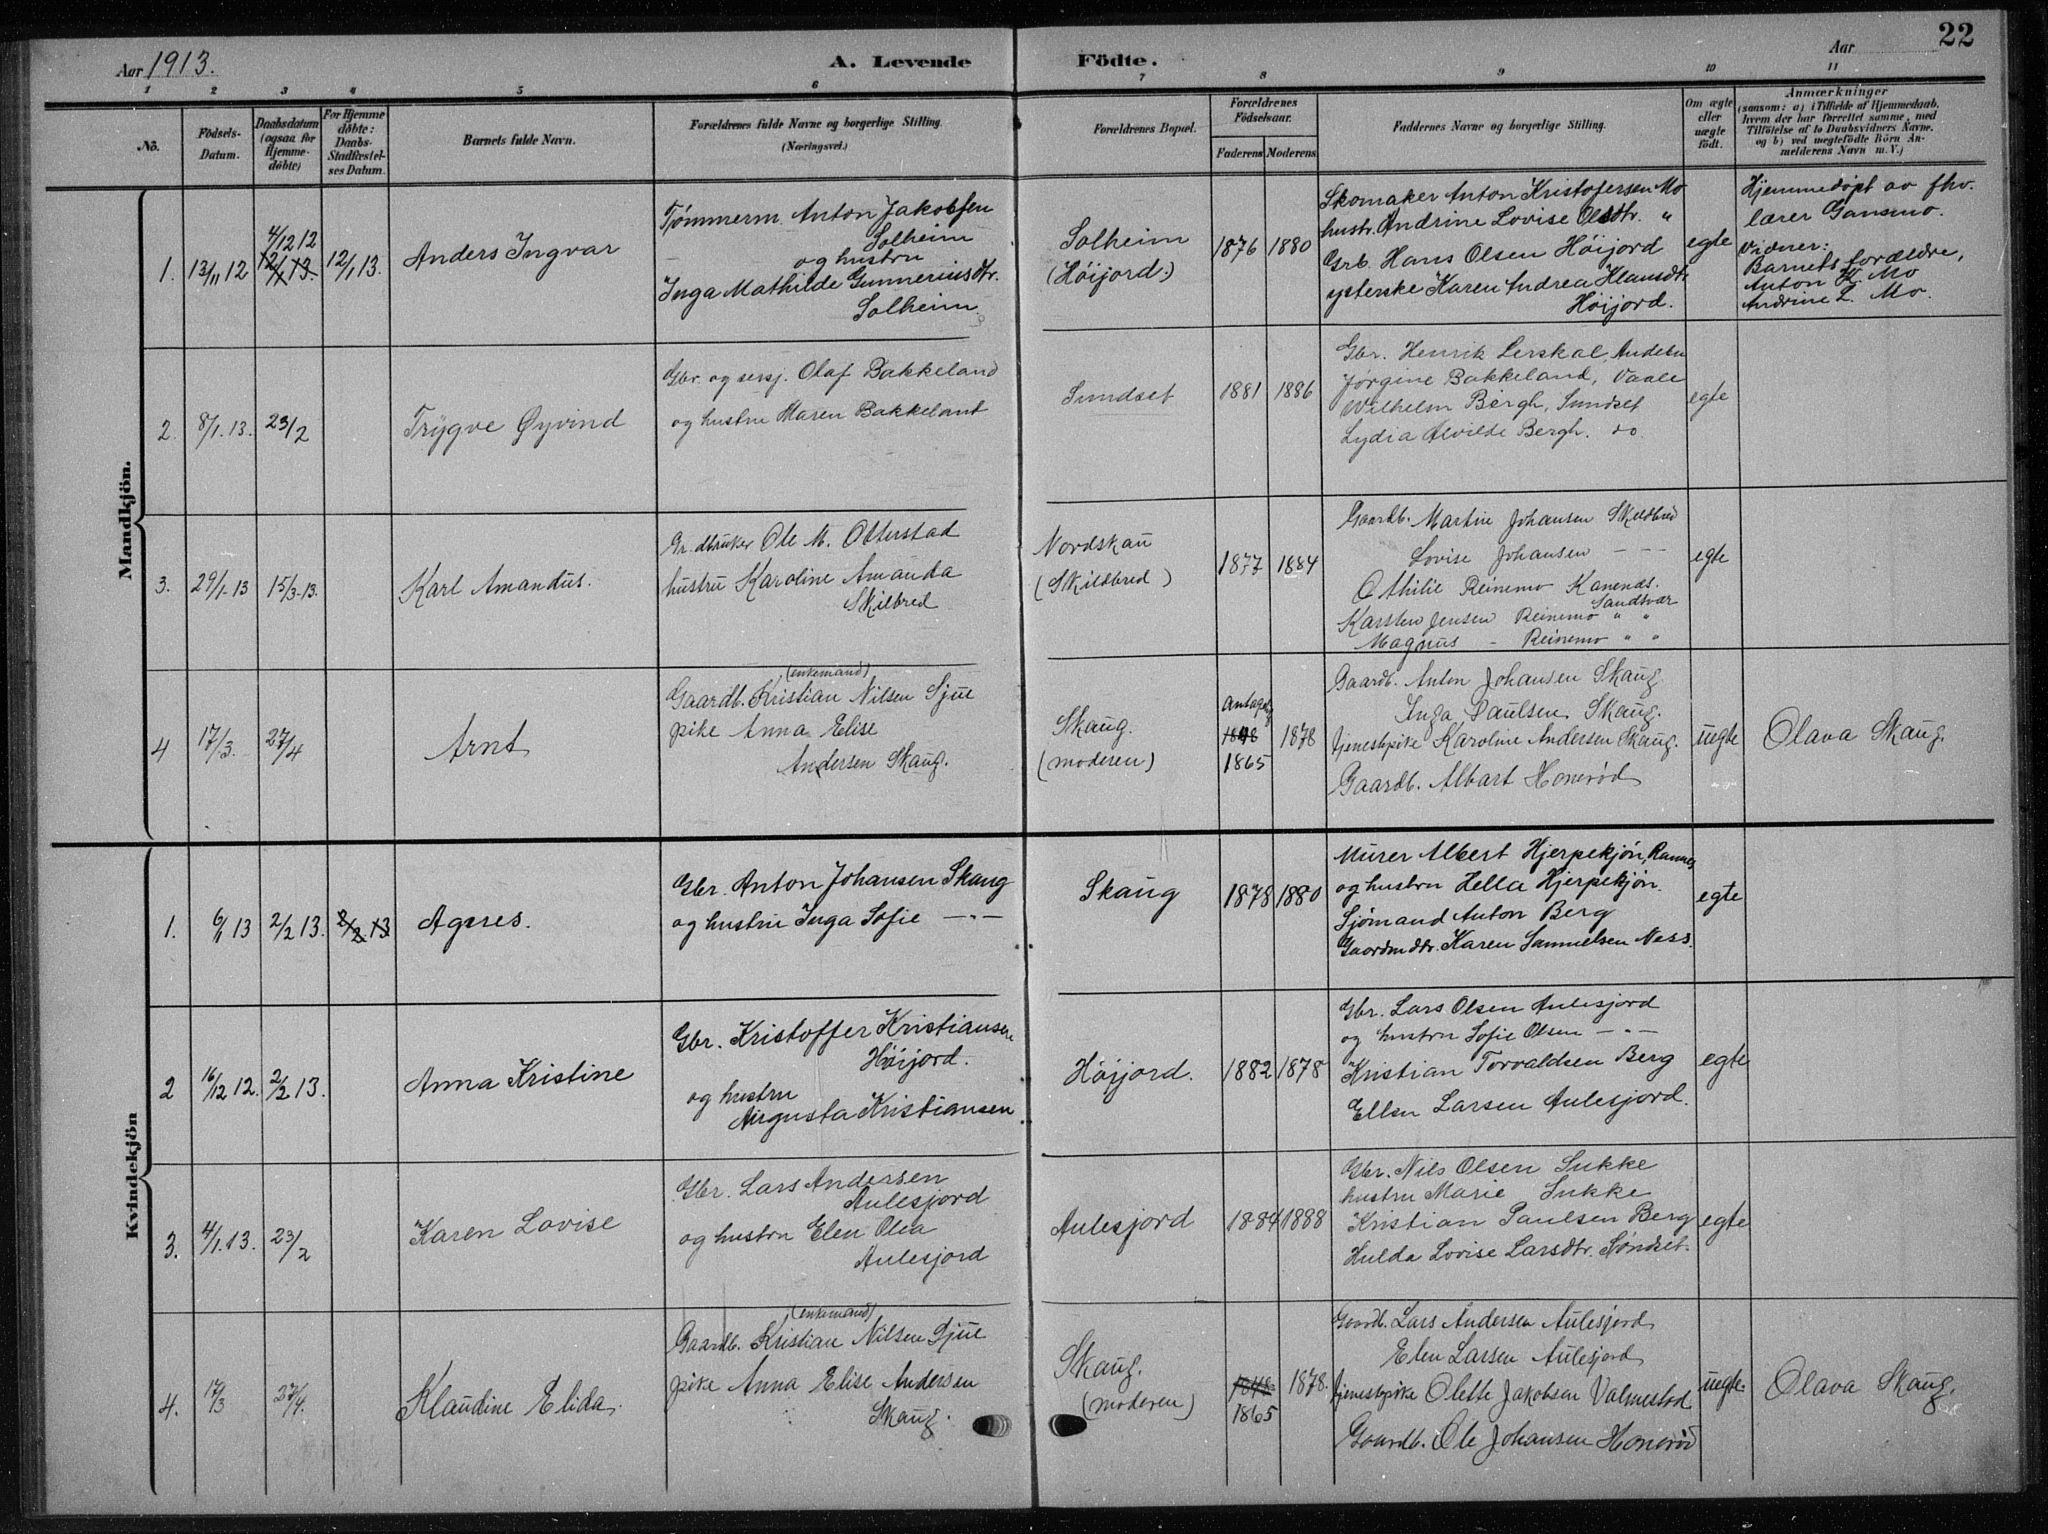 Aar 1913.
A. Levende Födte.
Aar
22
1 2 3 4 5 6 7 8 9 10 11
No.
Födsels-Datum.
Daabsdatum (ogsaa for Hjemme-döbte)
For Hjemme döbte: Daabs-Stadfæstel-ses Datum.
Barnets fulde Navn.
Forældrenes fulde Navne og borgerlige Stilling.
(Næringsvei.)
Forældrenes Bopæl.
Forældrenes Födselsaar.
Faderens Moderens
Faddernes Navne og borgerlige Stilling.
Om ægte eller uægte födt.
Anmærkninger
(saasom: a) i Tilfælde af Hjemmedaab, hvem der har forrettet samme, med Tilföielse af to Daabsvidners Navne. og b) ved uegtefödte Börn Anmelderens Navn m. V.)
Mandkjön.
1. 13/11 12
4/12 12
12/1 13.
12/1 13.
Anders Ingvar
Tjømmerm. Anton Jakobsen
Solheim
og hustru
Inga Mathilde Gunneriusdtr.
Solheim
Solheim
(Høijord.)
1876 1880
Skomaker Anton Kristofersen Mo
hustr. Andrine Lovise Olsdtr. "
Grb. Hans Olsen Höijord
ysterske Karen Andrea Hansdtr
Höijord.
egte
Hjemmedøpt av fhv.
lærer Gansmo.
Vidner:
Barnets forældre,
Anton K. Mo
Andrine L. Mo.
2. 8/1.13. 23/2
Trygve Øyvind
Gbr. og sersj. Olaf Bakkeland
og hustru Maren Bakkeland
Sundset
1881 1886
Gbr. Henrik Lerskal, Andebu
Jørgine Bakkeland, Vaale
Wilhelm Bergh, Sundset
Lydia Alvilde Bergh. do.
egte
3. 29/1-13 15/3-13.
Karl Amandus.
Gr.dbruker Ole M. Otterstad
hustru Karoline Amanda
Skilbred
Nordskau
(Skildbred)
1877 1884
Gaardb. Martin Johansen Skildbred
Lovise Johansen - - -
Othilie Reinemo Kanenæs.
Sandsvær
Karsten Jensen Reinemo " "
Magnus - Reinemo " "
egte
4 17/3. 27/4
Arnt
(enkemand)
Gaardb. Kristian Nilsen Sjue
pike Anna Elise
Andersen Skaug.
Skaug.
(moderen)
Antagelig
1848
1865
1878
Gaardb. Anton Johansen Skaug.
Inga Paulsen Skaug.
tjenestepike Karoline Andersen Skaug.
Gaardb. Albart Honerød
uegte
Olava Skaug.
Kvindekjön
1. 6/1 13 2/2 13. 2/2 13
Agnes.
Gbr. Anton Johansen Skaug
og hustru Inga Sofie -"-
Skaug
1878 1880
Murer Albert Hjerpekjön, Ramnes
og hustru Hella Hjerpekjön.
Sjømand Anton Berg
Gaardmdtr. Karen Samuelsen Næss.
egte
2 16/12 12. 2/2 13.
Anna Kristine
Gbr. Kristoffer Kristiansen
Höijord.
og hustru
Augusta Kristiansen
Höijord.
1882 1878
Gbr. Lars Olsen Aulesjord
og hustru Sofie Olsen -"-
Kristian Torvaldsen Berg
Ellen Larsen Aulesjord.
egte
3. 4/1.13. 23/2
Karen Lovise
Gbr. Lars Andersen
Aulesjord
og hustru Elen Olea
Aulesjord
Aulesjord
1884 1888
Gbr. Nils Olsen Sukke
hustru Marie Sukke
Kristian Paulsen Berg
Hulda Lovise Larsdtr. Søndset.
egte
4. 17/3 27/4.
Klaudine Elida.
(enkemand)
Gaardb. Kristian Nilsen Sjue
pike Anna Elise Andersen
Skaug.
Skaug.
(moderen)
1848
1865
1878.
Gaardb. Lars Andersen Aulesjord
Elen Larsen Aulesjord
tjenestepike Olette Jakobsen Valmestad
Gaardb. Ole Johansen Honerød
uegte.
Olava Skaug.